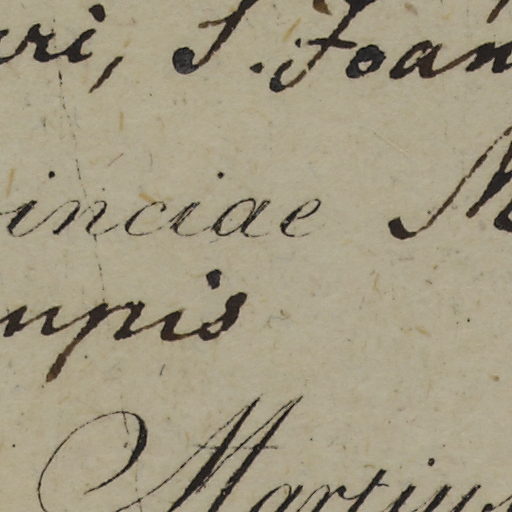 uri, S. Joan
vinciae M
mpis
Martius